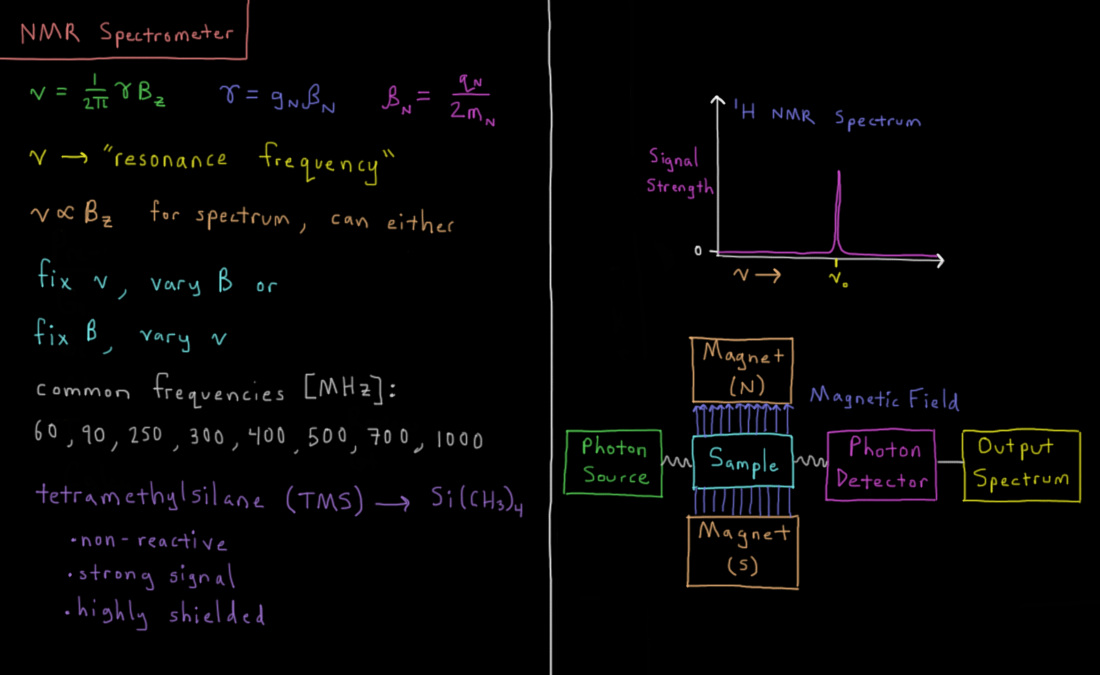 NMR Spectrometer
ν = 1/2π γ B_z   γ = g_N β_N   β_N = q_N/2m_N
ν → "resonance frequency"
ν ∝ B_z for spectrum, can either
fix ν, vary B or
fix B, vary ν
common frequencies [MHz]:
60, 90, 250, 300, 400, 500, 700, 1000
tetramethylsilane (TMS) → Si(CH₃)₄
·non-reactive
·strong signal
·highly shielded
¹H NMR Spectrum
Signal
Strength
0
ν →
ν₀
Magnet
(N)
Magnetic Field
Photon
Source
Sample
Photon
Detector
Output
Spectrum
Magnet
(S)